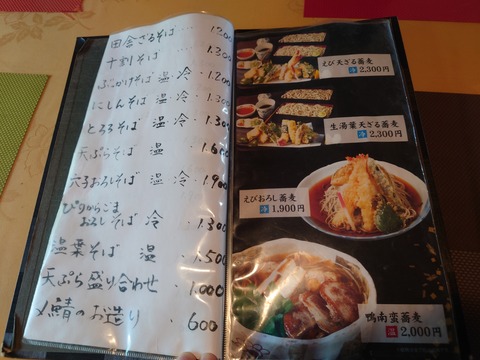 田舎ざるそば ・・・ 1.200
十割そば ・・・・ 1.300
ぶっかけそば 温 冷 ・ 1.200
にしんそば 温 冷 ・ 1.300
とろろそば 温 冷 ・ 1.300
天ぷらそば 温 ・ 1.600
穴子おろしそば 温 冷 ・ 1.900
ぴりからごま
おろしそば 冷 ・ 1.300
湯葉そば 温 ・ 1.500
天ぷら盛り合わせ ・ 1.000
〆鯖のお造り ・ 600
えび天ざる蕎麦
冷 2,300円
生湯葉天ざる蕎麦
冷 2,300円
えびおろし蕎麦
冷 1,900円
鴨南蛮蕎麦
温 2,000円